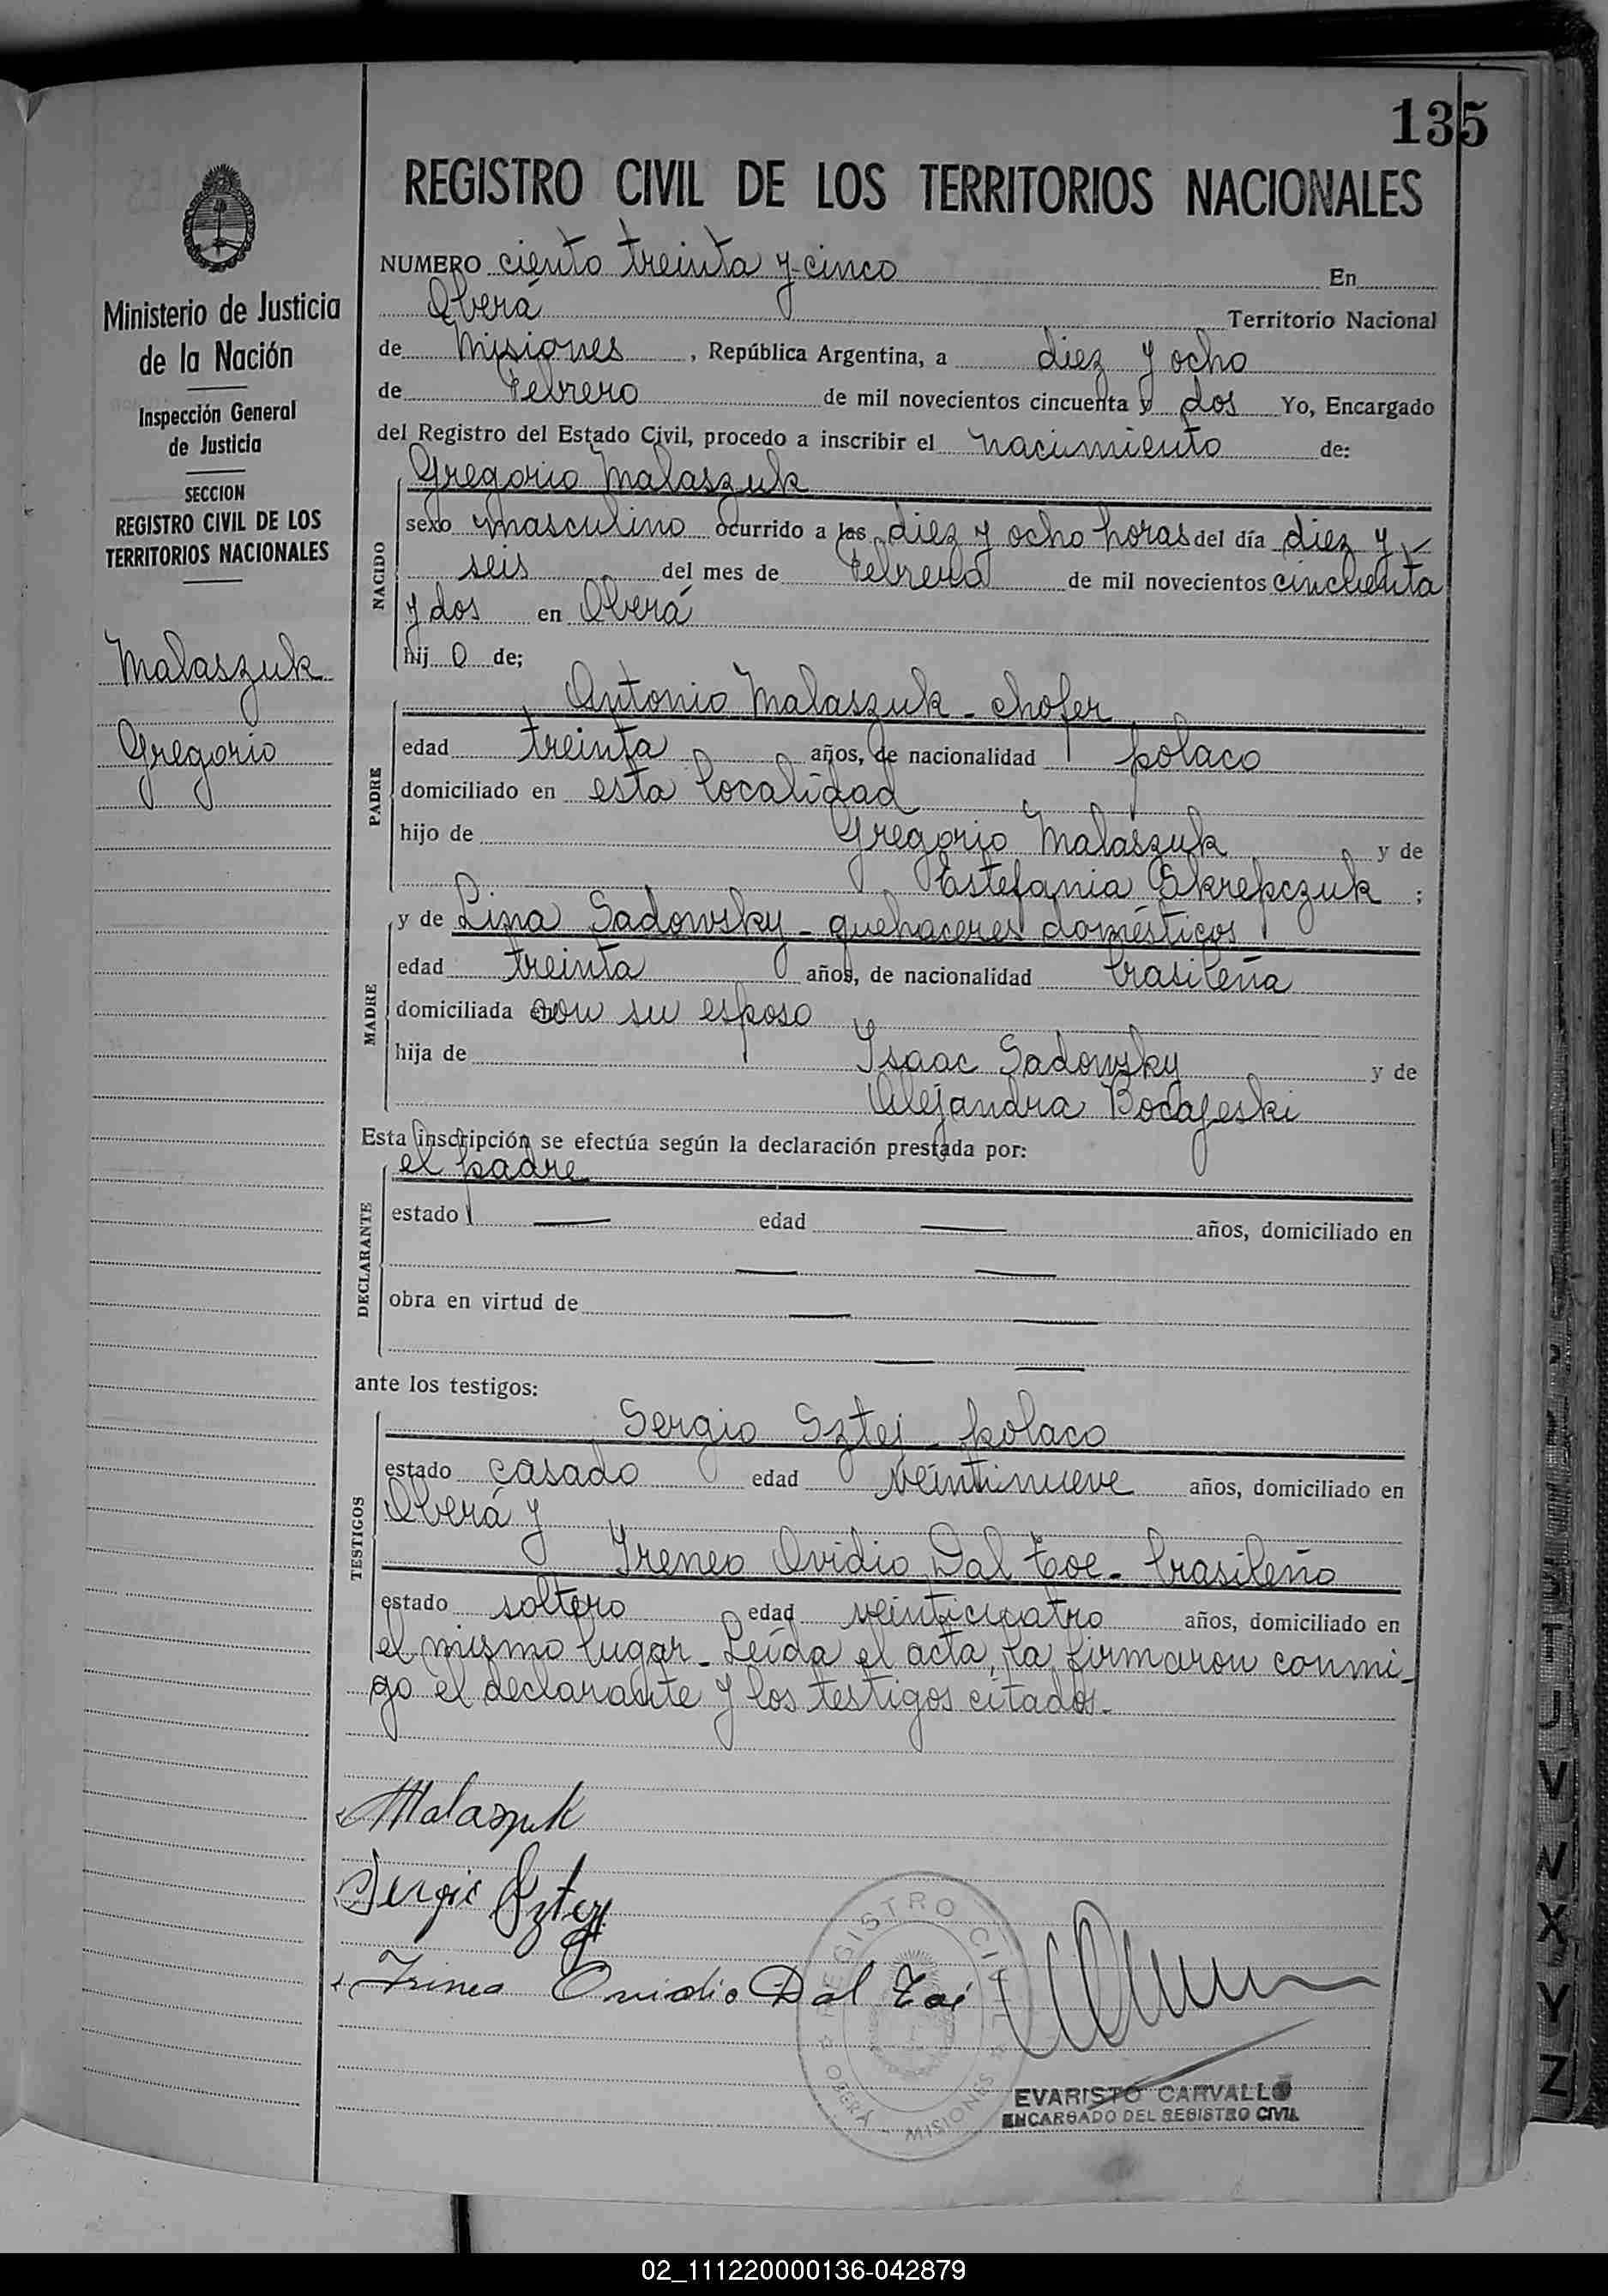 135
REGISTRO CIVIL DE LOS TERRITORIOS NACIONALES
Ministerio de Justicia
de la Nación
Inspección General
de Justicia
SECCION
REGISTRO CIVIL DE LOS
TERRITORIOS NACIONALES
Malaszuk
Gregorio
NUMERO ciento treinta y cinco En
Oberá Territorio Nacional
de Misiones, República Argentina, a diez y ocho
de Febrero de mil novecientos cincuenta y dos Yo, Encargado
del Registro del Estado Civil, procedo a inscribir el nacimiento de:
NACIDO
Gregorio Malaszuk
sexo masculino ocurrido a las diez y ocho horas del día diez y
seis del mes de Febrero de mil novecientos cincuenta
y dos en Oberá
hij o de;
PADRE
Antonio Malaszuk - chofer
edad treinta años, de nacionalidad polaco
domiciliado en esta localidad
hijo de Gregorio Malaszuk y de
Estefania Skrepczuk ;
MADRE
y de Lina Sadowsky - quehaceres domésticos
edad treinta años, de nacionalidad brasileña
domiciliada en con su esposo
hija de Isaac Sadowsky y de
Alejandra Bocajeski
Esta inscripción se efectúa según la declaración prestada por:
DECLARANTE
el padre
estado — edad — años, domiciliado en
— —
obra en virtud de — —
— —
ante los testigos:
TESTIGOS
Sergio Sztej - polaco
estado casado edad veintinueve años, domiciliado en
Oberá y
Ireneo Ovidio Dal Toe - brasileño
estado soltero edad veinticuatro años, domiciliado en
el mismo lugar - Leída el acta, la firmaron conmi-
go el declarante y los testigos citados.-
Malaszuk
Sergio Sztej
Irineo Ovidio Dal Toé
REGISTRO CIVIL
OBERÁ MISIONES
EVARISTO CARVALLO
ENCARGADO DEL REGISTRO CIVIL
T
U
V
W
X
Y
Z
02_111220000136-042879